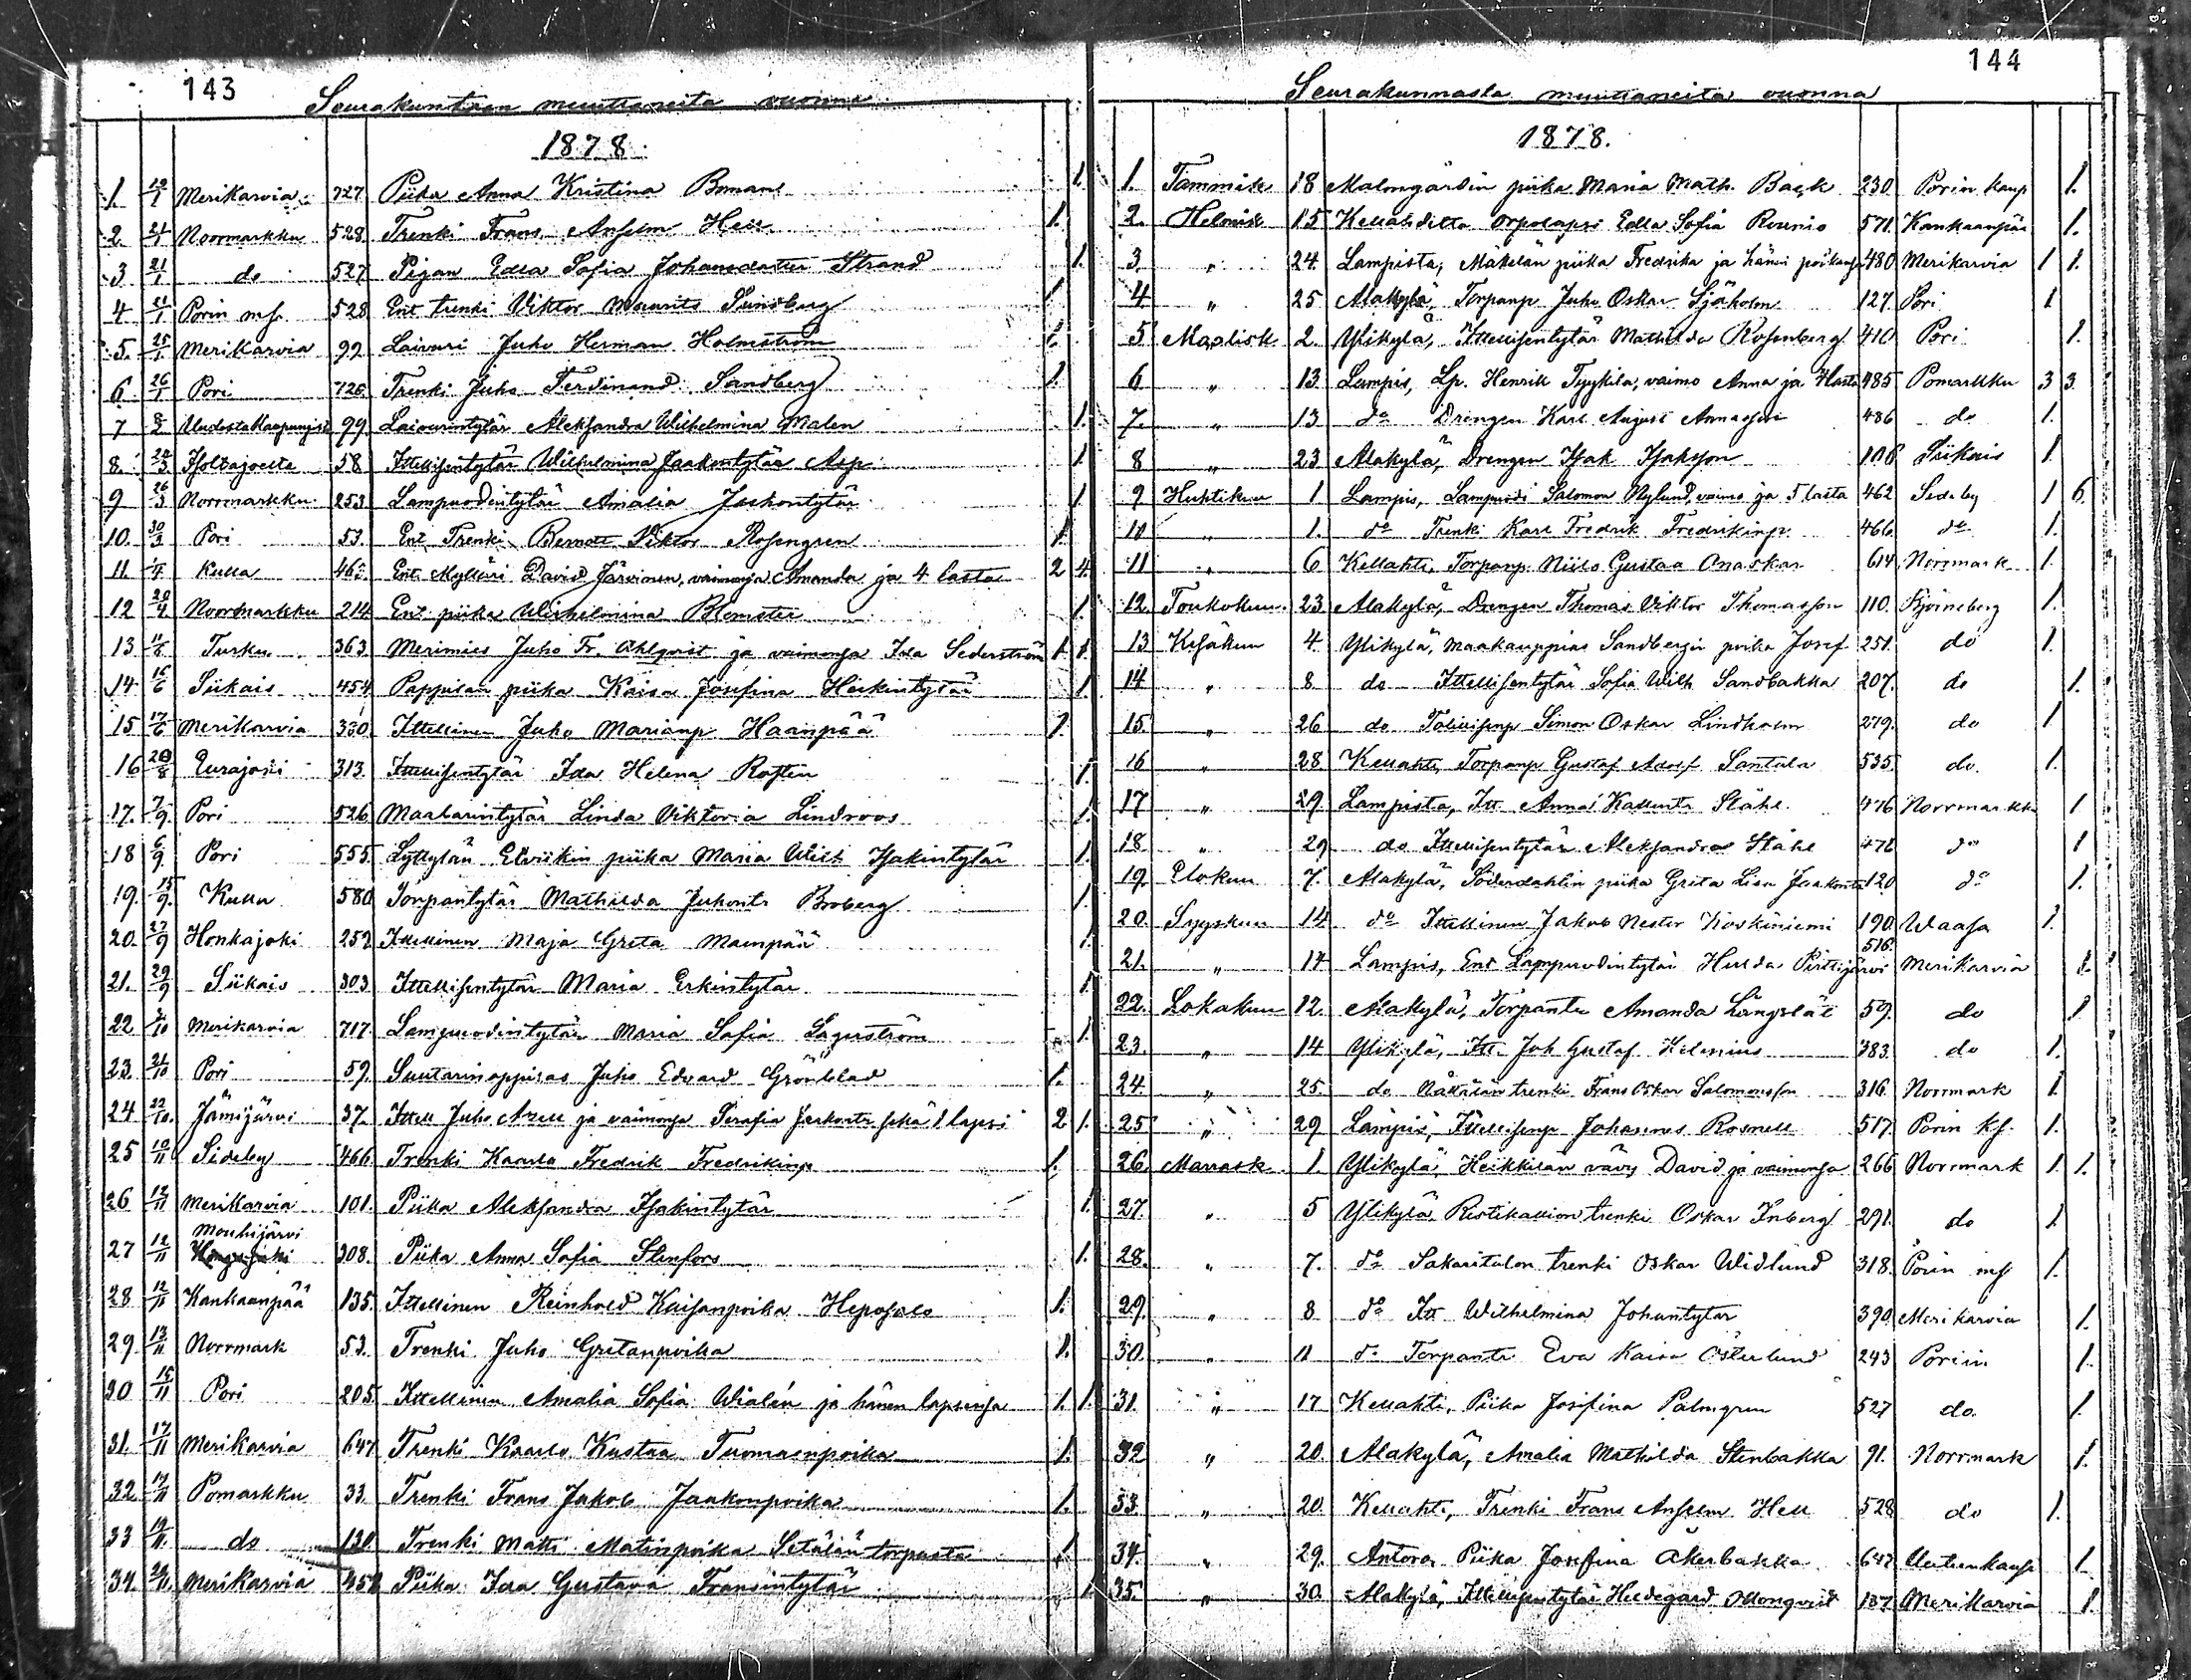 143
Seurakuntaan muuttaneita vuonna
1878.
1. 19/1 Merikarvia 727 Piika Anna Kristina 1.
2 21/1 Noormarkku 528 Trenki Frans Anselm Hell 1.
3 21/1 do 527 Pigan Edla Sofia Johansdotter Strand 1.
4 21/1 Porin msk. 528 Ent trenki Viktor Maurits Sundberg 1
5. 25/1 Merikarvia 99 Laivuri Juho Herman Holmström 1.
6 26/1 Pori 726 Trenki Juho Ferdinand Sandberg 1.
7 8/2 Uudestakaupungista 99. Laivurintytär Aleksandra Wilhelmina Malen 1.
8. 24/3 Isoltajoelta 58 Ittellisentytär Wilhelmina Jaakontytär Asp 1
9 26/3 Norrmarkku 253 Lampuodintytär Amalia Jaakontytär 1
10. 30/3 Pori 53. Ent Trenki Viktor Rosengren 1
11. Kulla Ent. Mylläri David Järvinen, vaimonsa Amanda ja 4 lasta 2 4.
12 20/4 Noormarkku 214 Ent piika Wilhelmina Blomster 1.
13 11/6 Turku 363 Merimies Juho Fr. Ahlqvist ja vaimonsa Ida Sederström 1 1.
14 16/6 Siikais 454 Pappilan piika Kaisa Josefina Heikintytär 1
15 17/6 Merikarvia 330 Ittellinen Juho Marianp Haanpää 1.
16 20/8 Eurajoki 313. Ittellisentytär Ida Helena Rosten 1.
17. 7/9. Pori 526 Maalarintytär Linda Viktoria Lindroos 1.
18 6/9 Pori 555. Lyttylän piika Maria Wilh Isakintytär 1.
19. 15/9. Kulla 580 Torpantytär Mathilda Juhontr Broberg 1.
20. 27/9 Honkajoki 252 Ittellinen Maja Greta Maenpää 1.
21. 29/9 Siikais 303 Ittellisentytär Maria Erkintytär 1.
22 Merikarvia 717. Lampuodintytär Maria Sofia Lagerström 1.
23. 21/10 Pori 59. Suutarinoppilas Juho Edvard Grönblad 1.
24 22/10. Jämijärvi 37. Ittell Juho ja vaimonsa Serafia Jaakontr sekä 1 lapsi 2 1.
25 10/11 Sideby 466 Trenki Kaarlo Fredrik Fredrikinp 1.
26 12/11 Merikarvia 101. Piika Aleksandra Isakintytär 1.
Mouhijärvi
27 12/11 308. Piika Anna Sofia Stenfors 1.
28 12/11 Kankaanpää 135. Ittellinen Reinhold Kaisanpoika Heposalo 1.
29. 13/11 Norrmark 53. Trenki Juho Gretanpoika 1.
30 15/11 Pori 205. Ittellinen Amalia Sofia Wialén ja hänen lapsensa 1. 1.
31. 17/11 Merikarvia 647 Trenki Kaarlo Kustaa Tuomaanpoika 1.
32. 19/11 Pomarkku 33. Trenki Frans Jakob Jaakonpoika 1.
33 19/11. do 130 Trenki Matti Matinpoika Setälän torpasta 1
34. Merikarvia Piika Ida Gustava Fransintytär 1
144
Seurakunnasta muuttaneita vuonna
1878.
1. Tammik 18 Malmgårdin piika Maria Math. Back 230. Porin kaup 1.
2. Helmik 15 Kellahdilta Orpolapsi Edla Sofia Rounio 571. Kankaanpää 1.
3. " 24. Lampista, Mäkelän piika Fredrika ja hänen poikansa 480 Merikarvia 1 1.
4 " 25 Alakylä, Torpanp Juho Oskar Sjöholm 127. Pori 1
5 Maalisk 2. Ylikylä, Ittellisentytär Mathilda Rosenberg 410 Pori 1.
6 " 13. Lampis, Lp. Henrik Tyykilä, vaimo Anna ja lasta 485 Pomarkku 3 3.
7. " 13 do Drengen Karl August Annasson 486 do 1.
8 " 23 Alakylä, Drengen Isak Isaksson 108 Siikais 1.
9 Huhtikuu 1 Lampis, Lampuodi Salomon Nylund, vaimo ja 5 lasta 462 Sideby 1 6.
10 " 1. do Trenki Karl Fredrik Fredrikinp. 466. do 1.
11 " 6 Kellahti, Torpanp. Niilo Gustaa Anaskar 614 Norrmark 1.
12. Toukokuu. 23 Alakylä, Drengen Thomas Viktor Thomasson 110. Björneborg 1.
13 Kesäkuu 4 Ylikylä, Maakauppias Sandbergin poika Josef 251. do 1.
14 " 8. do Ittellisentytär Sofia Wilh Sandbakka 207. do 1.
15. " 26 do Simon Oskar Lindholm 279. do 1
16 " 28 Kellahti, Torpanp Gustaf Adolf Santala 535. do. 1.
17 " 29. Lampista, Itt. Anna Kallentr Ståhl 476 Norrmarkku 1
18 " 29 do Ittellisentytär Aleksandra Ståhl 476 do 1
19. Elokuu 7. Alakylä, Söderdahlin piika Greta Lisa Jaakontr 120 do 1.
20. Syyskuu 14 do Ittellinen Jakob Nestor Koskiniemi 190. Waasa 1.
21. " 14 Lampis, Ent Lampuodintytär Hulda Perttijärvi 516. Merikarvia 1.
22. Lokakuu 12. Alakylä, Torpantr Amanda Långslät 59. do 1
23. " 14 Ylikylä, Itt. Joh Gustaf Helenius 383. do 1.
24. " 25. do trenki Frans Oskar Salomonsson 316. Norrmark 1.
25 " 29 Lampis, Ittellisenp Johannes Rosnell 517. Porin ks. 1.
26 Marrask. 1. Ylikylä, Heikkilän vävy David ja vaimonsa 266 Norrmark 1. 1.
27. " 5 Ylikylä, Ristikallion trenki Oskar Inberg 291. do 1.
28. " 7. do Sakaritalon trenki Oskar Widlund 318. Porin msk 1.
29. " 8 do Itt Wilhelmina Johantytär 390. Merikarvia 1.
30. " 11 do Torpantr. Eva Kaisa Österlund 243 Poriin 1.
31. " 17 Kellahti, Piika Josefina Palmgren 527 do. 1.
32 " 20. Alakylä, Amalia Mathilda Stenbakka 91. Norrmark 1.
33. " 20. Kellahti, Trenki Frans Anselm Hell 528 do 1.
34. " 29. Antora Piika Josefina Åkerbakka 647 1.
35. " 30. Alakylä, Ittellisentytär Hildegard 137. Merikarvia 1.